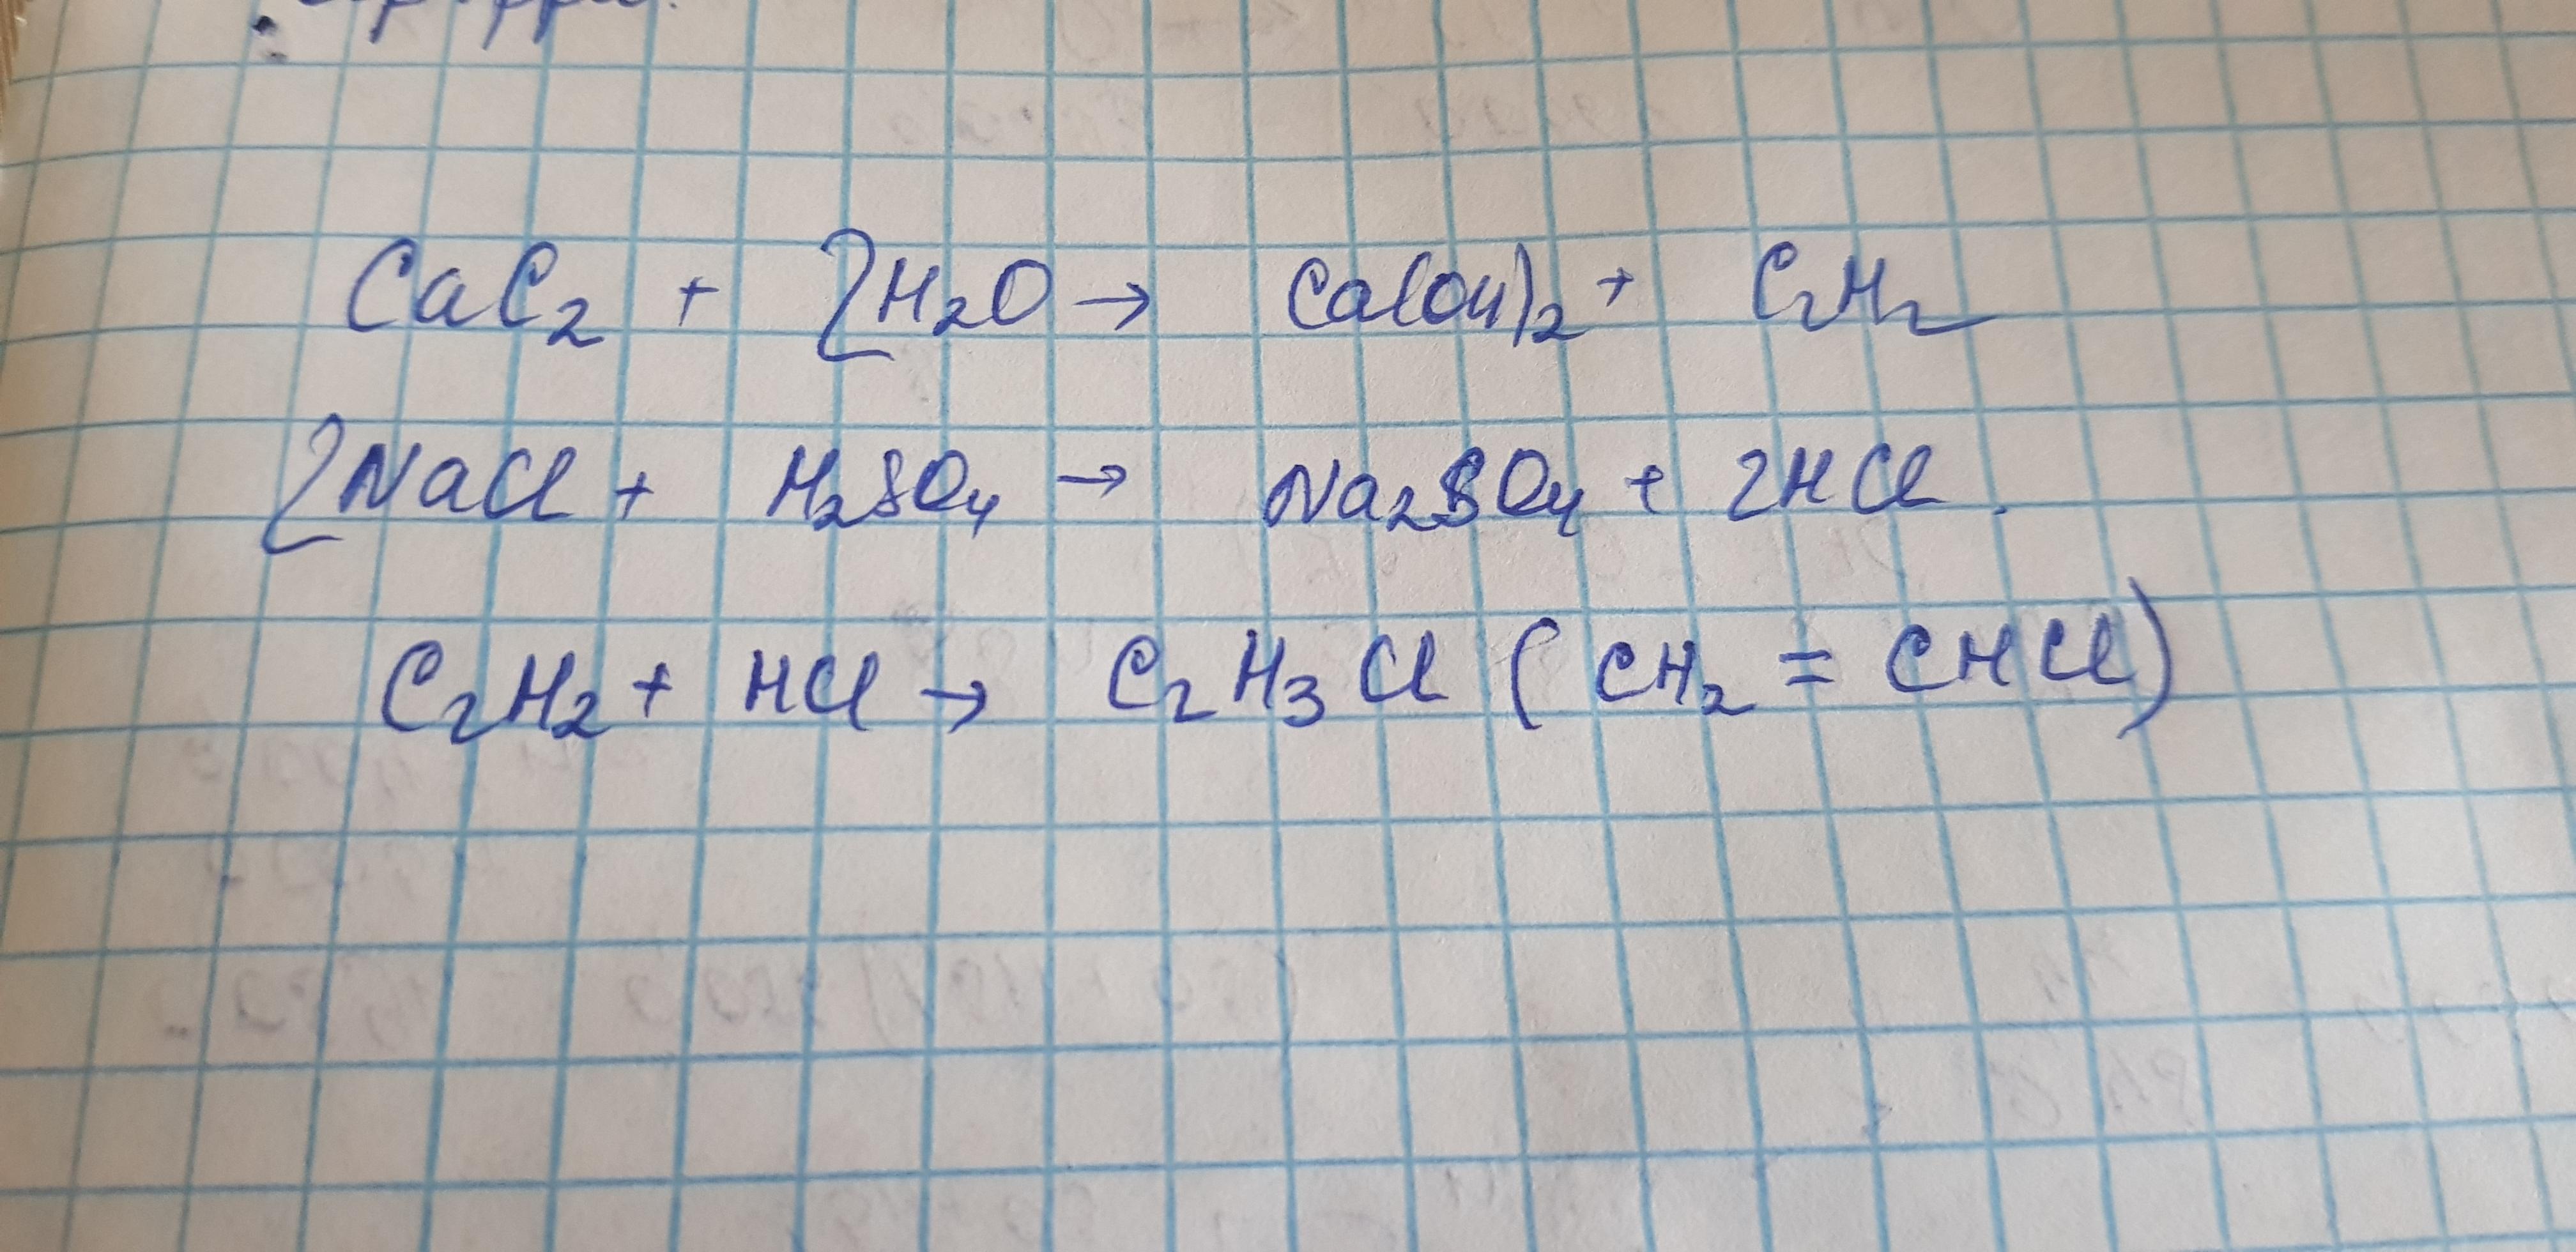 CaC₂ + 2H₂O → Ca(OH)₂ + C₂H₂
2NaCl + H₂SO₄ → Na₂SO₄ + 2HCl.
C₂H₂ + HCl → C₂H₃Cl (CH₂ = CHCl)